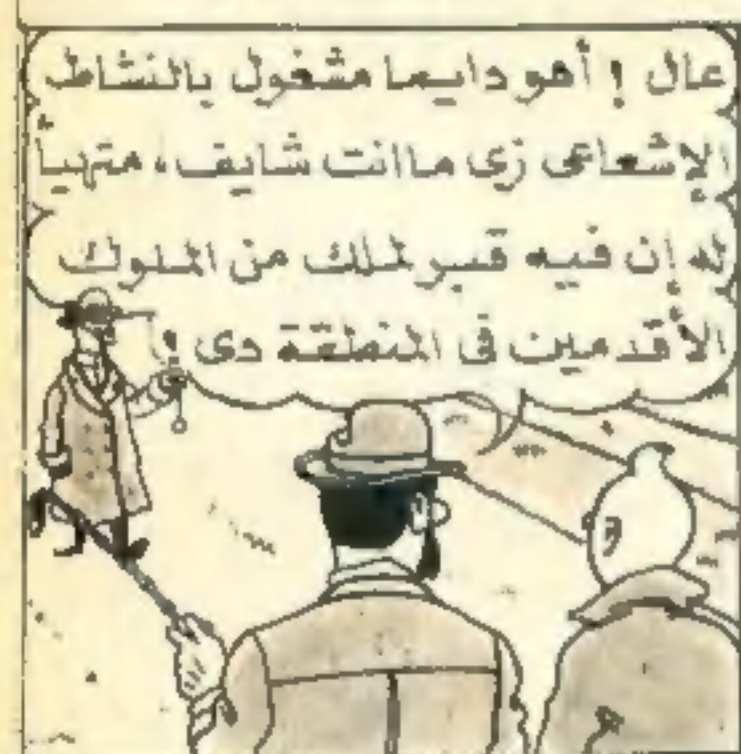 عال ! أهو دايما مشغول بالنشاط
الإشعاعى زى ماانت شايف، متهيأ
له إن فيه قبر لملك من الملوك
الأقدمين فى المنطقة دى !